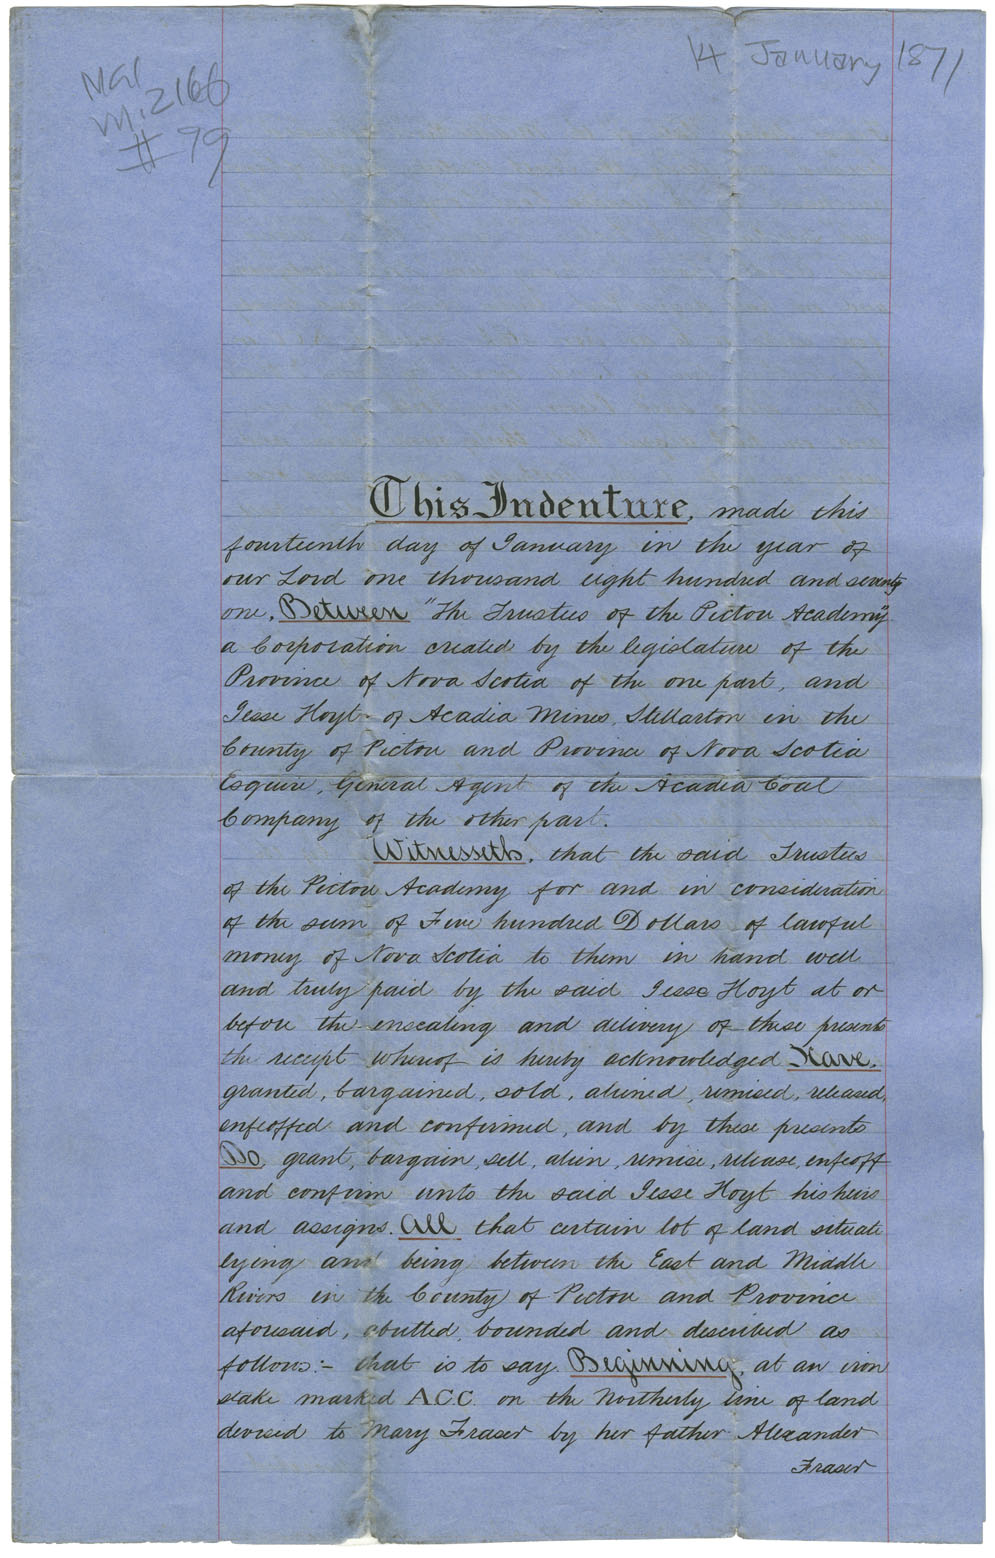 MG1
M.2166
# 99
14 January 1871
This Indenture, made this
fourteenth day of January in the year of
our Lord one thousand eight hundred and seventy
one, Between "The Trustees of the Pictou Academy"
a Corporation created by the legislature of the
Province of Nova Scotia of the one part, and
Jesse Hoyt of Acadia Mines, Stellarton in the
County of Pictou and Province of Nova Scotia
Esquire, General Agent of the Acadia Coal
Company of the other part.
Witnesseth, that the said Trustees
of the Pictou Academy for and in consideration
of the sum of Five hundred Dollars of lawful
money of Nova Scotia to them in hand well
and truly paid by the said Jesse Hoyt at or
before the ensealing and delivery of these presents
the receipt whereof is hereby acknowledged Have,
granted, bargained, sold, aliened, remised, released,
enfeoffed and confirmed, and by these presents
Do, grant, bargain, sell, alien, remise, release, enfeoff
and confirm unto the said Jesse Hoyt his heirs
and assigns. All that certain lot of land situate
lying and being between the East and Middle
Rivers in the County of Pictou and Province
aforesaid, abutted, bounded and described as
follows:- that is to say. Beginning, at an iron
stake marked A.C.C. on the Northerly line of land
devised to Mary Fraser by her father Alexander
Fraser